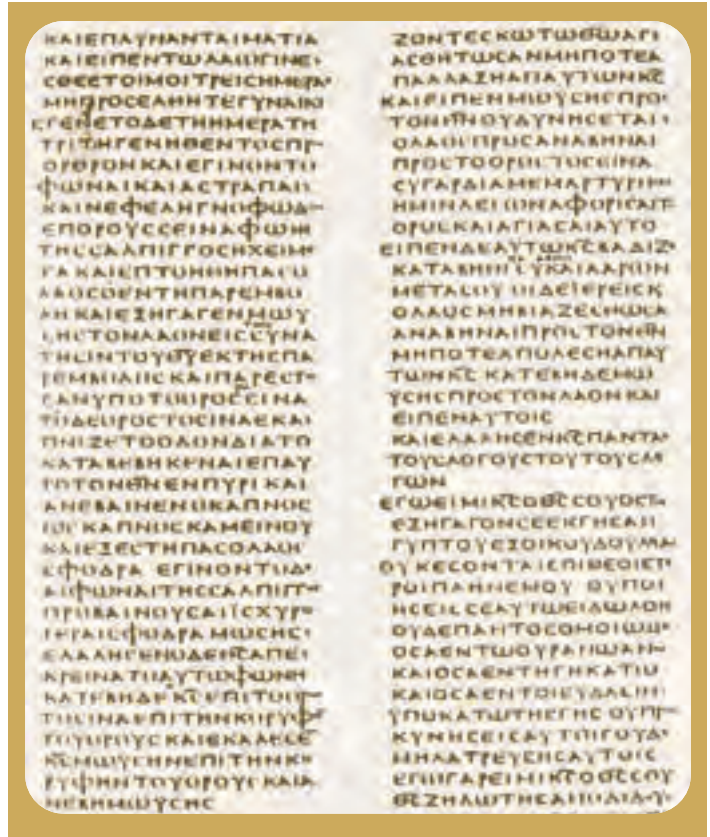 ΚΑΙΕΠΛΥΝΑΝΤΑΙΜΑΤΙΑ
ΚΑΙΕΙΠΕΝΤΩΛΑΩΓΙΝΕ
ΣΘΕΕΤΟΙΜΟΙΤΡΕΙΣΗΜΕΡΑ
ΜΗΠΡΟΣΕΛΘΗΤΕΓΥΝΑΙΚΙ
ΕΓΕΝΕΤΟΔΕΤΗΗΜΕΡΑΤΗ
ΤΡΙΤΗΓΕΝΗΘΕΝΤΟΣΠΡ
ΟΡΘΡΟΝΚΑΙΕΓΙΝΟΝΤΟ
ΦΩΝΑΙΚΑΙΑΣΤΡΑΠΑΙ
ΚΑΙΝΕΦΕΛΗΓΝΟΦΩΔ
ΕΠΟΡΟΥΣΣΕΙΝΑΦΩΝΗ
ΤΗΣΣΑΛΠΙΓΓΟΣΗΧΕΙΜΕ
ΓΑΚΑΙΕΠΤΟΗΘΗΠΑΣΟ
ΛΑΟΣΟΕΝΤΗΠΑΡΕΜΒΟ
ΛΗΚΑΙΕΞΗΓΑΓΕΝΜΩΥ
ΣΗΣΤΟΝΛΑΟΝΕΙΣΣΥΝΑ
ΤΗΣΙΝΤΟΥΘΥΕΚΤΗΣΠΑ
ΡΕΜΒΟΛΗΣΚΑΙΠΑΡΕΣΤ
ΣΑΝΥΠΟΤΟΟΡΟΣΣΕΙΝΑ
ΤΟΔΕΟΡΟΣΤΟΣΙΝΑΕΚΑ
ΠΝΙΖΕΤΟΟΛΟΝΔΙΑΤΟ
ΚΑΤΑΒΕΒΗΚΕΝΑΙΕΠΑΥ
ΤΟΤΟΝΘΝΕΝΠΥΡΙΚΑΙ
ΑΝΕΒΑΙΝΕΝΟΚΑΠΝΟΣ
ΩΣΚΑΠΝΟΣΚΑΜΕΙΝΟΥ
ΚΑΙΕΞΕΣΤΗΠΑΣΟΛΑΟΣ
ΣΦΟΔΡΑ ΕΓΙΝΟΝΤΟΔΕ
ΑΙΦΩΝΑΙΤΗΣΣΑΛΠΙΓΓ
ΠΡΟΒΑΙΝΟΥΣΑΙΙΣΧΥΡΟ
ΤΕΡΑΙΣΦΟΔΡΑ ΜΩΣΗΣ
ΕΛΑΛΗΣΕΝΟΔΕΘΣΑΠΕ
ΚΡΕΙΝΑΤΟΑΥΤΩΦΩΝΗ
ΚΑΤΕΒΗΔΕΚΣΕΠΙΤΟΟΡ
ΤΟΣΙΝΑΕΠΙΤΗΝΚΟΡΥΦΗ
ΤΟΥΟΡΟΥΣΚΑΙΕΚΑΛΕΣΕ
ΚΣΜΩΥΣΗΝΕΠΙΤΗΝΚΟ
ΡΥΦΗΝΤΟΥΟΡΟΥΣΚΑΙΑ
ΝΕΒΗΜΩΥΣΗΣ
ΖΟΝΤΕΣΚΩΤΩΘΩΑΓΙ
ΑΣΘΗΤΩΣΑΝΜΗΠΟΤΕΑ
ΠΑΛΛΑΞΗΑΠΑΥΤΩΝΚΣ
ΚΑΙΕΙΠΕΝΜΩΥΣΗΣΠΡΟ
ΤΟΝΘΝΟΥΔΥΝΗΣΕΤΑΙ
ΟΛΑΟΣΠΡΟΣΑΝΑΒΗΝΑΙ
ΠΡΟΣΤΟΟΡΟΣΤΟΣΕΙΝΑ
ΣΥΓΑΡΔΙΑΜΕΜΑΡΤΥΡΗ
ΗΜΙΝΛΕΓΩΝΑΦΟΡΙΣΑΙΤ
ΟΡΟΣΚΑΙΑΓΙΑΣΑΙΑΥΤΟ
ΕΙΠΕΝΔΕΑΥΤΩΚΣΒΑΔΙΖΕ
ΚΑΤΑΒΗΘΙΣΥΚΑΙΑΑΡΩΝ
ΜΕΤΑΣΟΥ ΟΙΔΕΙΕΡΕΙΣΚ
ΟΛΑΟΣΜΗΒΙΑΖΕΣΘΩΣΑ
ΑΝΑΒΗΝΑΙΠΡΟΣΤΟΝΘΝ
ΜΗΠΟΤΕΑΠΟΛΕΣΗΑΠΑΥ
ΤΩΝΚΣ ΚΑΤΕΒΗΔΕΜΩ
ΥΣΗΣΠΡΟΣΤΟΝΛΑΟΝΚΑΙ
ΕΙΠΕΝΑΥΤΟΙΣ
ΚΑΙΕΛΑΛΗΣΕΝΚΣΠΑΝΤΑ
ΤΟΥΣΛΟΓΟΥΣΤΟΥΤΟΥΣΛΕ
ΓΩΝ
ΕΓΩΕΙΜΙΚΣΟΘΣΣΟΥΟΣΤ
ΕΞΗΓΑΓΟΝΣΕΕΚΓΗΣΑΙ
ΓΥΠΤΟΥΕΞΟΙΚΟΥΔΟΥΛΙΑ
ΟΥΚΕΣΟΝΤΑΙΣΟΙΘΕΟΙΕΤ
ΡΟΙΠΛΗΝΕΜΟΥ ΟΥΠΟΙ
ΗΣΕΙΣΣΕΑΥΤΩΕΙΔΩΛΟΝ
ΟΥΔΕΠΑΝΤΟΣΟΜΟΙΩΜΑ
ΟΣΑΕΝΤΩΟΥΡΑΝΩΑΝ
ΚΑΙΟΣΑΕΝΤΗΓΗΚΑΤΩ
ΚΑΙΟΣΑΕΝΤΟΙΣΥΔΑΣΙΝ
ΥΠΟΚΑΤΩΤΗΣΓΗΣ ΟΥΠΡ
ΚΥΝΗΣΕΙΣΑΥΤΟΙΣΟΥΔΕ
ΜΗΛΑΤΡΕΥΣΗΣΑΥΤΟΙΣ
ΕΓΩΓΑΡΕΙΜΙΚΣΟΘΣΣΟΥ
ΘΣΖΗΛΩΤΗΣΑΠΟΔΙΔΟΥ